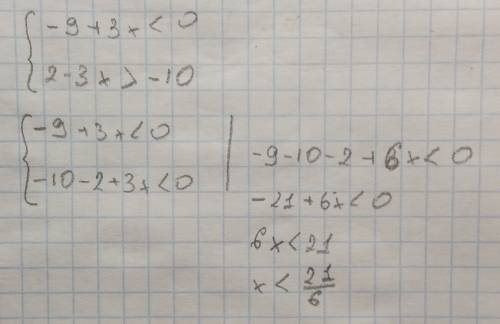 { -9 + 3x < 0
2 - 3x > -10
{ -9 + 3x < 0
-10 - 2 + 3x < 0
-9 - 10 - 2 + 6x < 0
-21 + 6x < 0
6x < 21
x < 21/6